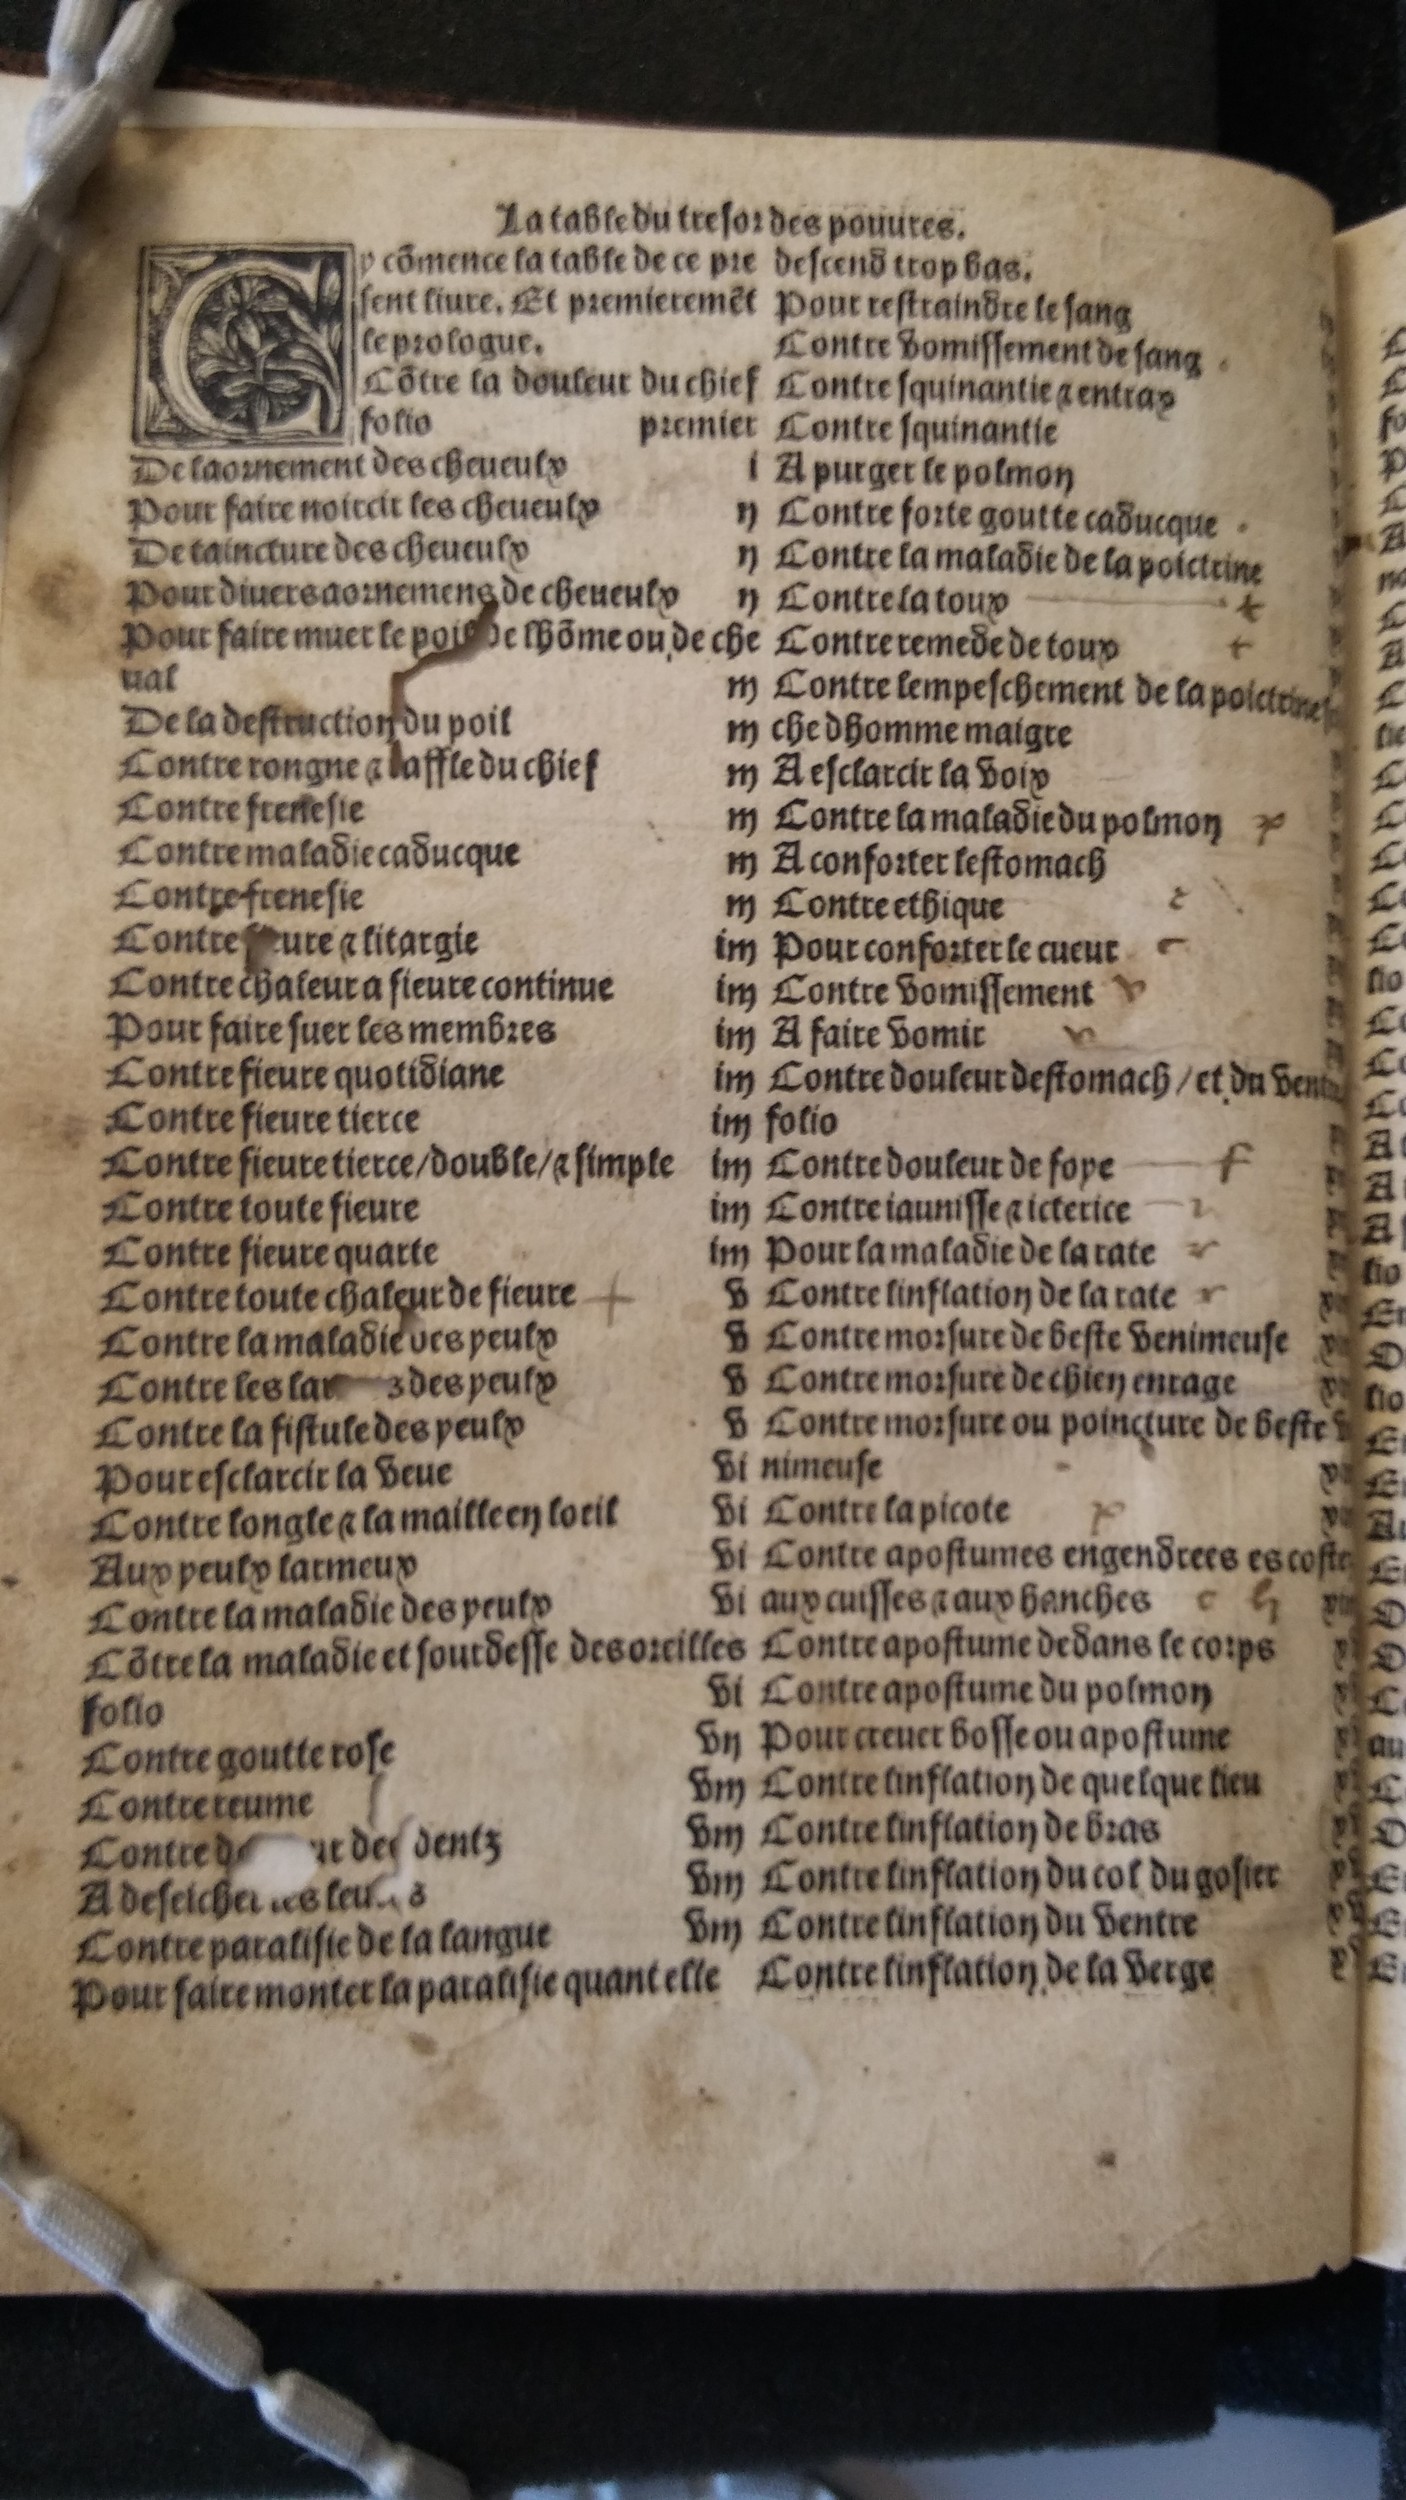 La table du tresor des pouures.
C
y cōmence la table de ce pre
sent liure. Et premieremēt
le prologue.
Cōtre la douleur du chief
folio premier
De laornement des cheueulx i
Pour faire noircir les cheueulx ij
De taincture des cheueulx ij
Pour diuers aornemens de cheueulx ij
Pour faire muer le poil de lhōme ou de che
ual iij
De la destruction du poil iij
Contre rongne ⁊ du chief iij
Contre frenesie iij
Contre maladie caducque iij
Contre frenesie iij
Contre ⁊ litargie iiij
Contre chaleur a fieure continue iiij
Pour faire suer les membres iiij
Contre fieure quotidiane iiij
Contre fieure tierce iiij
Contre fieure tierce/double/⁊ simple iiij
Contre toute fieure iiij
Contre fieure quarte iiij
Contre toute chaleur de fieure v
Contre la maladie des yeulx v
Contre les des yeulx v
Contre la fistule des yeulx v
Pour esclarcir la veue vi
Contre longle ⁊ la maille en loeil vi
Aux yeulx larmeux vi
Contre la maladie des yeulx vi
Cōtre la maladie et sourdesse des oreilles
folio vi
Contre goutte rose vij
Contre reume viij
Contre des dentz viij
A deseicher les viij
Contre paralisie de la langue viij
Pour faire monter la paralisie quant elle
descend trop bas.
Pour restraindre le sang
Contre vomissement de sang
Contre squinantie ⁊ entrax
Contre squinantie
A purger le polmon
Contre forte goutte caducque
Contre la maladie de la poictrine
Contre la toux
Contre remede de toux
Contre lempeschement de la poictrine
che dhomme maigre
A esclarcir la voix
Contre la maladie du polmon
A conforter lestomach
Contre ethique
Pour conforter le cueur
Contre vomissement
A faire vomir
Contre douleur destomach/et du
folio
Contre douleur de foye f
Contre iaunisse ⁊ icterice
Pour la maladie de la rate
Contre linflation de la rate
Contre morsure de beste venimeuse
Contre morsure de chien enrage
Contre morsure ou poincture de beste
nimeuse
Contre la picote
Contre apostumes engendrees es
aux cuisses ⁊ aux hanches c h
Contre apostume dedans le corps
Contre apostume du polmon
Pour creuer bosse ou apostume
Contre linflation de quelque lieu
Contre linflation de bras
Contre linflation du col du gosier
Contre linflation du ventre
Contre linflation de la verge